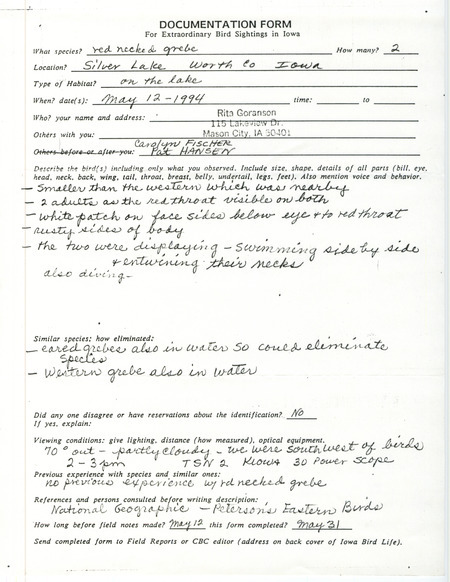 DOCUMENTATION FORM
For Extraordinary Bird Sightings in Iowa
What species? red necked grebe How many? 2
Location? Silver Lake Worth Co Iowa
Type of Habitat? on the lake
When? date(s): May 12-1994 time: to
Who? your name and address: Rita Goranson
115 Lakeview Dr.
Others with you: Mason City, IA 50401
Carolyn FISCHER
Others before or after you: Pat HANSEN
Describe the bird(s) including only what you observed. Include size, shape, details of all parts (bill, eye,
head, neck, back, wing, tail, throat, breast, belly, undertail, legs, feet). Also mention voice and behavior.
- Smaller than the western which was nearby
- 2 adults as the red throat visible on both
- white patch on face sides below eye & to red throat
- rusty sides of body
- the two were displaying - swimming side by side
& entwining their necks
also diving -
Similar species: how eliminated:
- eared grebes also in water so could eliminate
species
- Western grebe also in water
Did any one disagree or have reservations about the identification? No
If yes, explain:
Viewing conditions: give lighting, distance (how measured), optical equipment,
70° out - partly cloudy - we were southwest of birds
2-3 pm TSN 2 Kiowa 30 power scope
Previous experience with species and similar ones:
no previous experience w/ red necked grebe
References and persons consulted before writing description:
National Geographic - Peterson's Eastern Birds
How long before field notes made? May 12 this form completed? May 31
Send completed form to Field Reports or CBC editor (address on back cover of Iowa Bird Life).